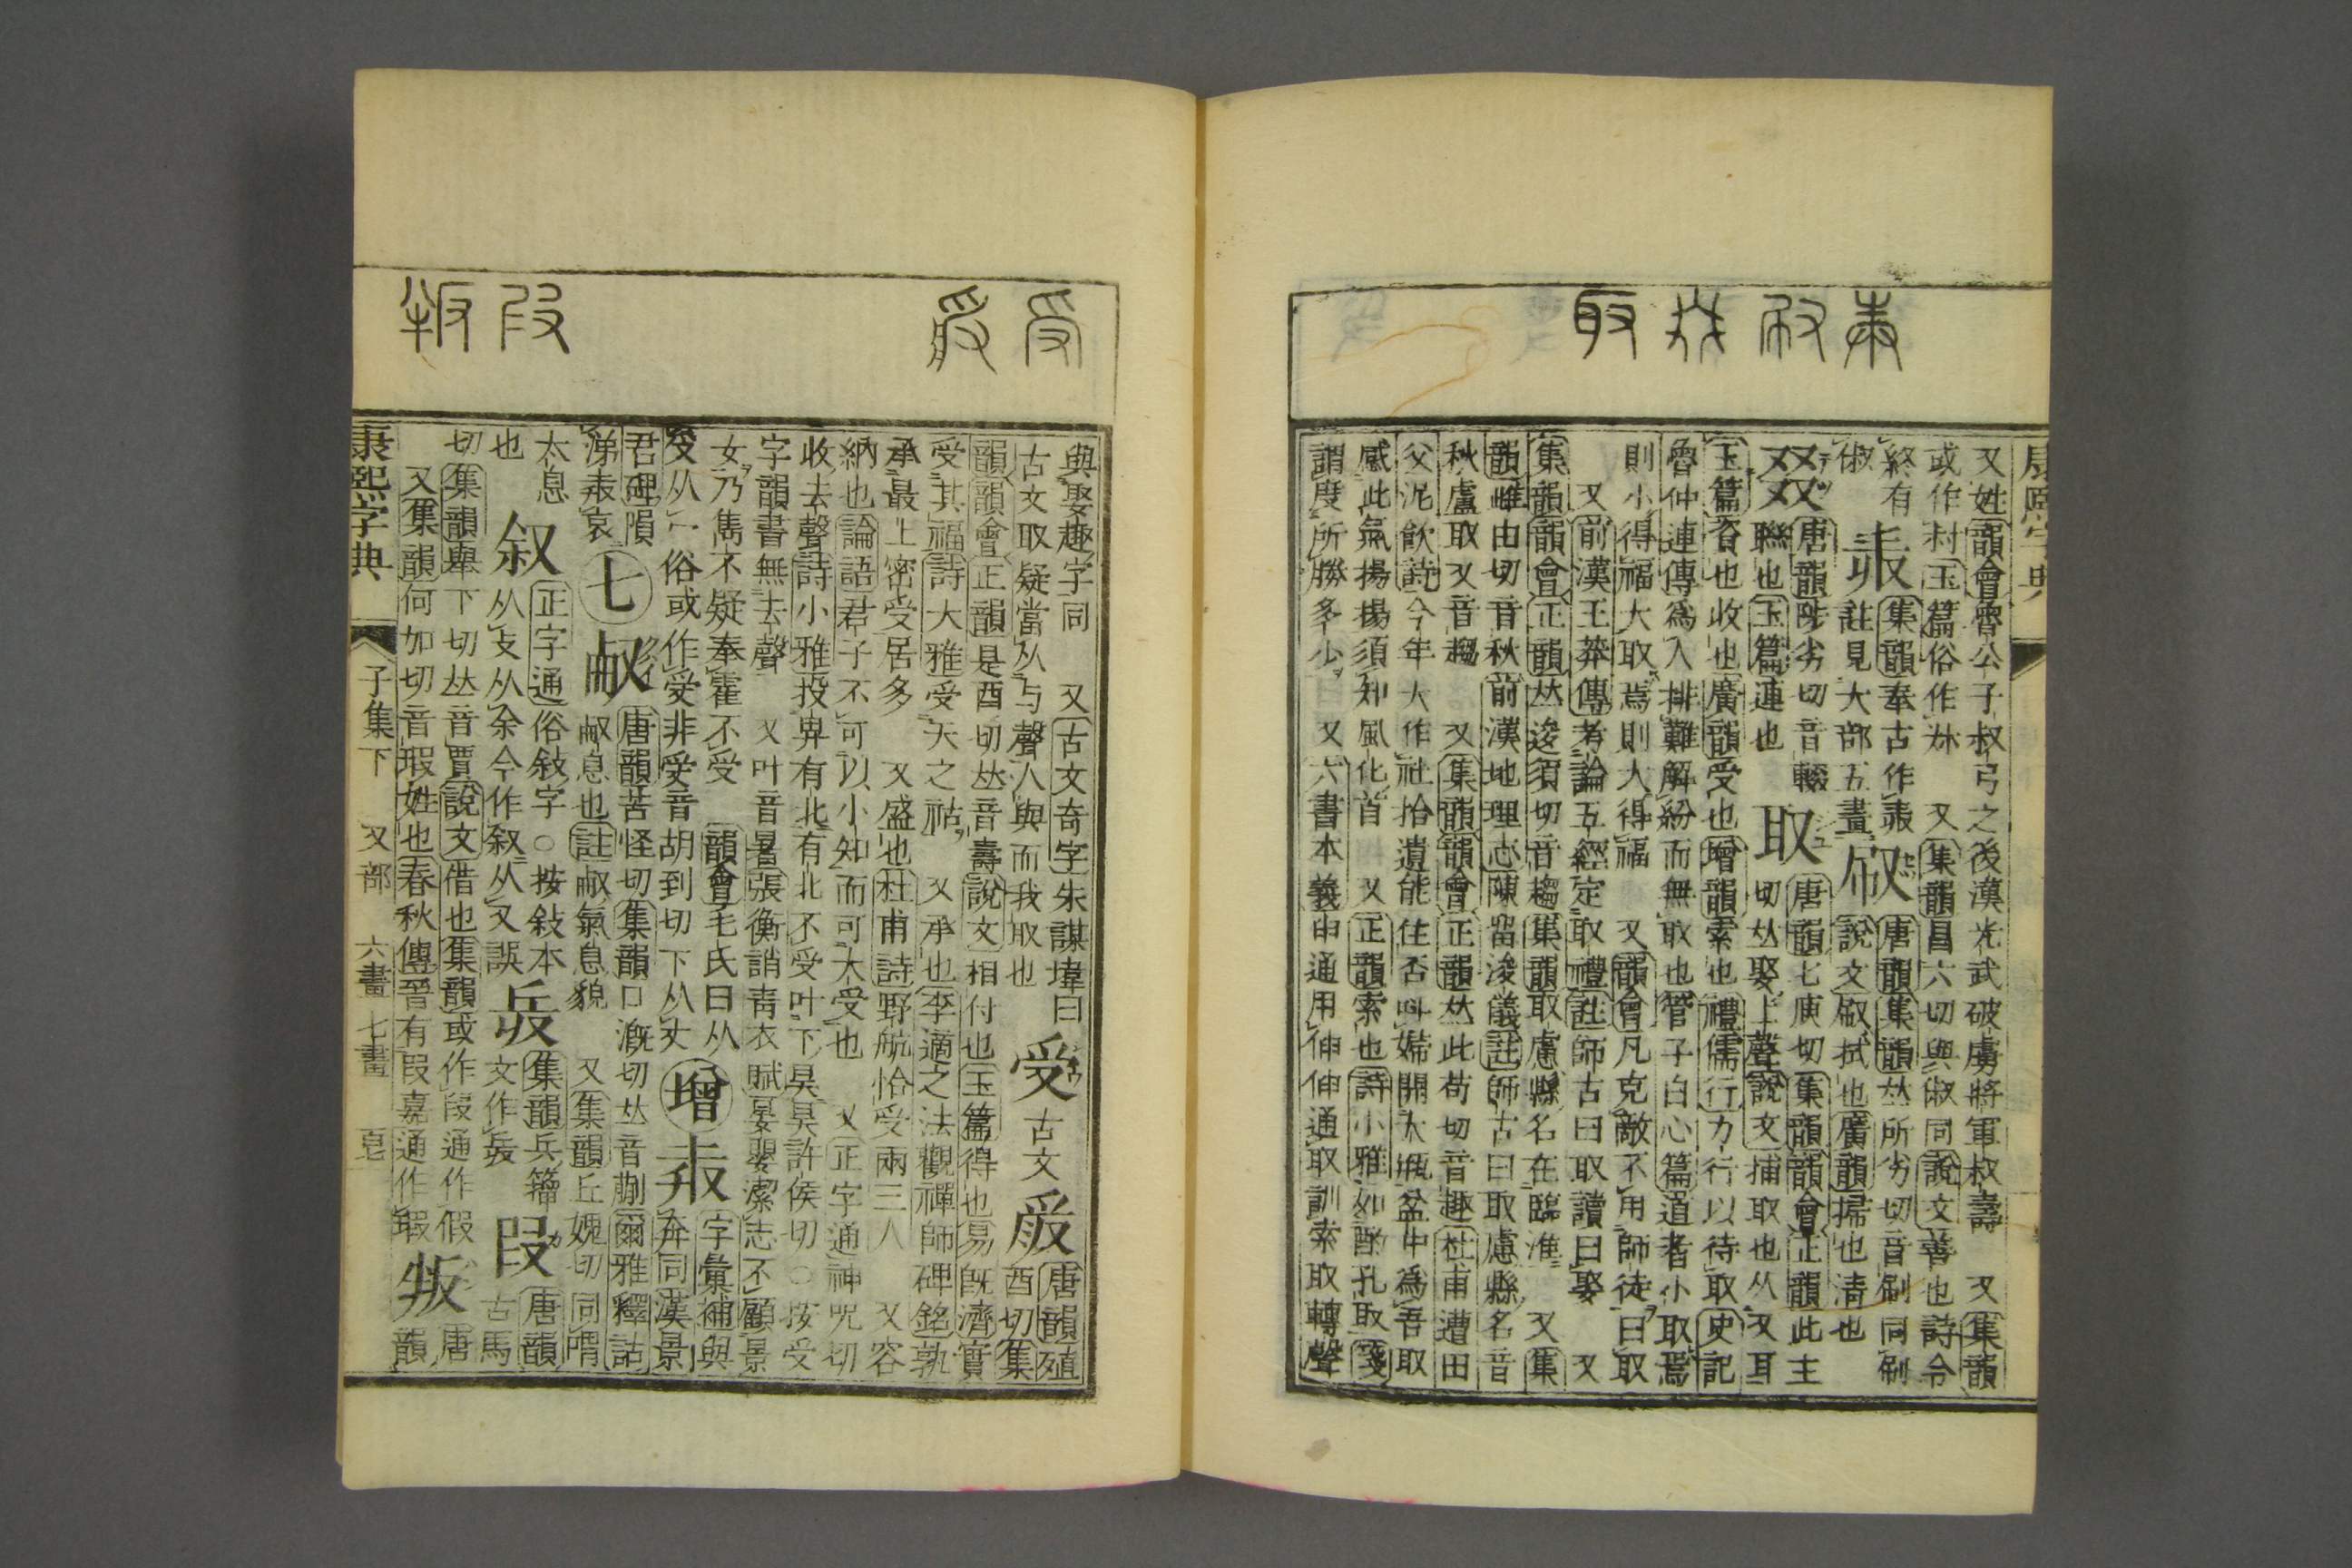 又姓韻會魯公子叔弓之後漢光武破虜將軍叔壽　又集韻
或作村玉篇俗作𡬧　又集韻昌六切與俶同說文善也詩令
終有
俶
集韻奉古作
註見大部五畫
㕞
唐韻集韻𠀤所劣切音刷同刷
說文㕞拭也廣韻掃也清也
叕
唐韻陟劣切音輟
聯也玉篇連也
取
唐韻七庾切集韻韻會正韻此主
切𠀤娶上聲說文捕取也从又耳
玉篇資也收也廣韻受也增韻索也禮儒行力行以待取史記
魯仲連傳爲人排難解紛而無取也管子白心篇道者小取焉
則小得福大取焉則大得福　又韻會凡克敵不用師徒曰取
又前漢王莽傳考論五經定取禮註師古曰取讀曰娶　又
集韻韻會正韻𠀤逡須切音趨集韻取慮縣名在臨淮　又集
韻雌由切音秋前漢地理志陳留浚儀註師古曰取慮縣名音
秋盧取又音趨　又集韻韻會正韻𠀤此苟切音趣杜甫遭田
父泥飮詩今年大作社拾遺能住否叫婦開大甁盆中爲吾取
感此氣揚揚須知風化首　又正韻索也詩小雅如酌孔取箋
謂度所勝多少　又六書本義申通用伸伸通取訓索取轉聲
與娶趣字同　又古文奇字朱謀㙔曰
古文取疑當从与聲人與而我取也
受
古文
𤔫
唐韻殖
酉切集
韻韻會正韻是酉切𠀤音壽說文相付也玉篇得也易旣濟實
受其福詩大雅受天之祜　又承也李適之法觀禪師碑銘孰
承最上密受居多　又盛也杜甫詩野航恰受兩三人　又容
納也論語君子不可以小知而可大受也　又正字通神呪切
收去聲詩小雅投畀有北有北不受叶下昊昊許侯切○按受
字韻書無去聲　又叶音暑張衡誚靑衣賦晏嬰潔志不顧景
女乃雋不疑奉霍不受　韻會毛氏曰从
爫从冖俗或作受非受音胡到切下从丈
增
字彙補與
奔同漢景
君碑隕
涕哀
七
㕟
唐韻苦怪切集韻口漑切𠀤音蒯爾雅釋詁
㕟息也註㕟氣息貌　又集韻丘媿切同喟
太息
也
叙
正字通俗敍字○按敍本
从攴从余今作叙从又誤
集韻兵籀
文作
叚
唐韻
古馬
切集韻舉下切𠀤音賈說文借也集韻或作叚通作假
又集韻何加切音瑕姓也春秋傳晉有叚嘉通作瑕
叛
唐
韻
康熙字典
子集下　又部　六畫　七畫
康熙字典